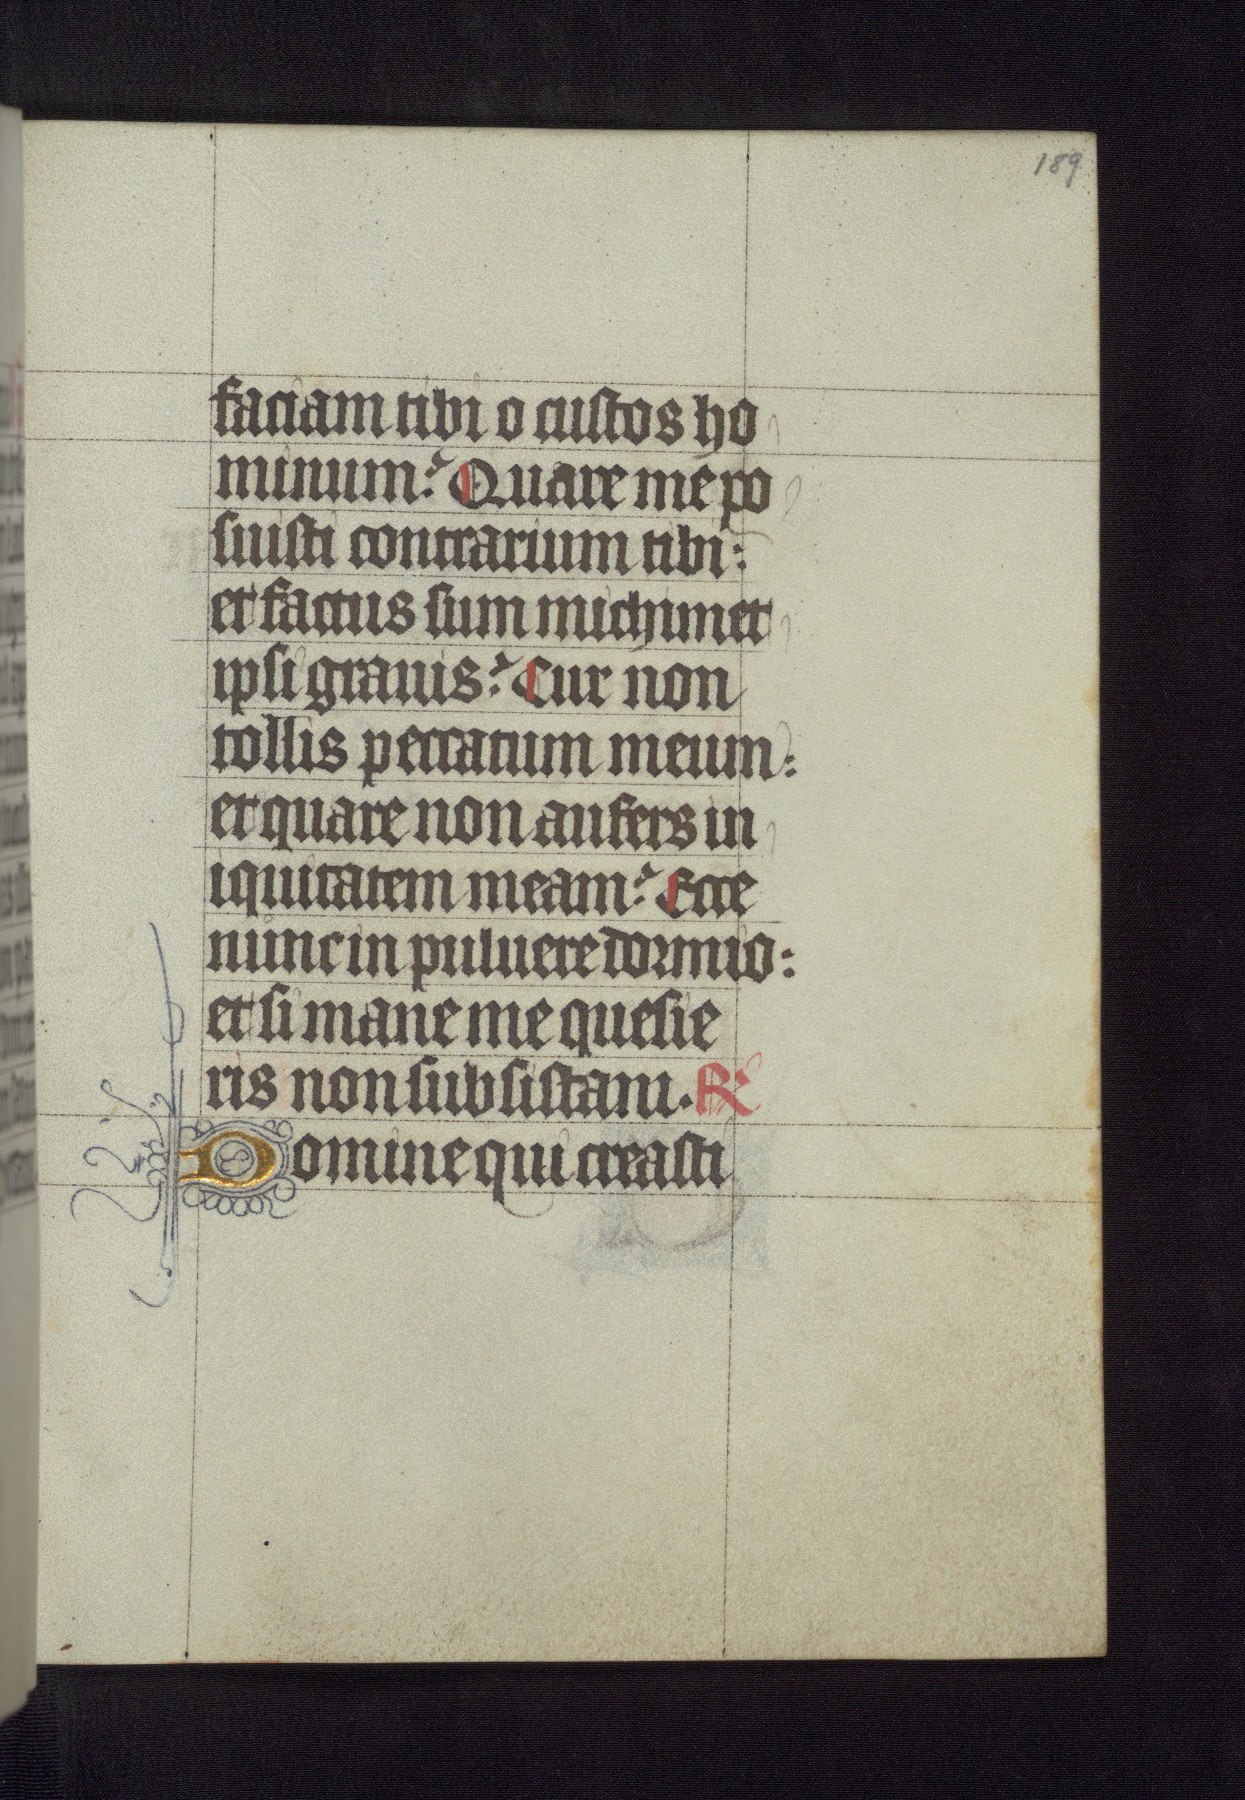 189
faciam tibi o custos ho
minum? Quare me po
suisti contrarium tibi:
et factus sum michimet
ipsi grauis? Cur non
tollis peccatum meum:
et quare non aufers in
iquitatem meam? Ecce
nunc in puluere dormio:
et si mane me quesie
ris non subsistam. R
Domine qui creasti